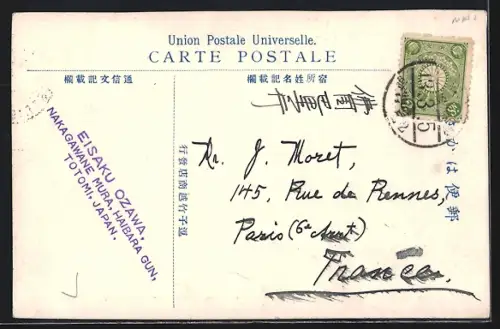 Union Postale Universelle.
CARTE POSTALE
欄載記文信通
欄載記名姓所宿
EISAKU OZAWA.
NAKAGAWANE MURA, HAIBARA GUN,
TOTOMI. JAPAN.
逗子竹越商店發行
郵便はかき
Mr. J. Moret,
145, Rue de Rennes,
Paris (6e Arrt.)
France.